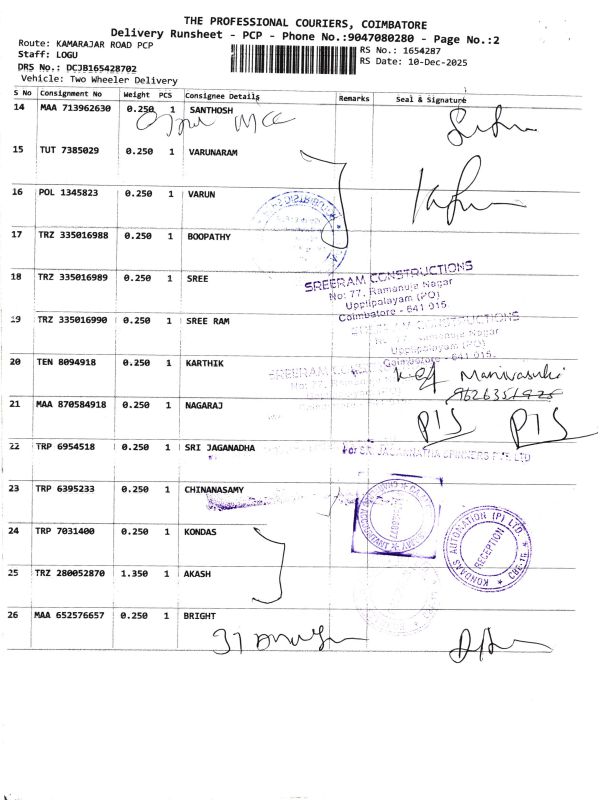 THE PROFESSIONAL COURIERS, COIMBATORE
Delivery Runsheet - PCP - Phone No.:9047080280 - Page No.:2
Route: KAMARAJAR ROAD PCP
Staff: LOGU
DRS No.: DCJB165428702
Vehicle: Two Wheeler Delivery
RS No.: 1654287
RS Date: 10-Dec-2025
S No Consignment No Weight PCS Consignee Details Remarks Seal & Signature
14 MAA 713962630 0.250 1 SANTHOSH
15 TUT 7385029 0.250 1 VARUNARAM
16 POL 1345823 0.250 1 VARUN
17 TRZ 335016988 0.250 1 BOOPATHY
18 TRZ 335016989 0.250 1 SREE
SREERAM CONSTRUCTIONS
No: 77, Ramanuja Nagar
Uppilipalayam (PO)
Coimbatore - 641 015.
19 TRZ 335016990 0.250 1 SREE RAM
SREERAM CONSTRUCTIONS
Ramanuja Nagar
Uppilipalayam (PO)
Coimbatore - 641 015.
20 TEN 8094918 0.250 1 KARTHIK
Manivasuki
21 MAA 870584918 0.250 1 NAGARAJ
PTS PTS
22 TRP 6954518 0.250 1 SRI JAGANADHA
For SRI JAGANNATHA SPINNERS PVT. LTD
23 TRP 6395233 0.250 1 CHINANASAMY
24 TRP 7031400 0.250 1 KONDAS
KONDAAS AUTOMATION (P) LTD.
RECEPTION
CBE-15
25 TRZ 280052870 1.350 1 AKASH
26 MAA 652576657 0.250 1 BRIGHT